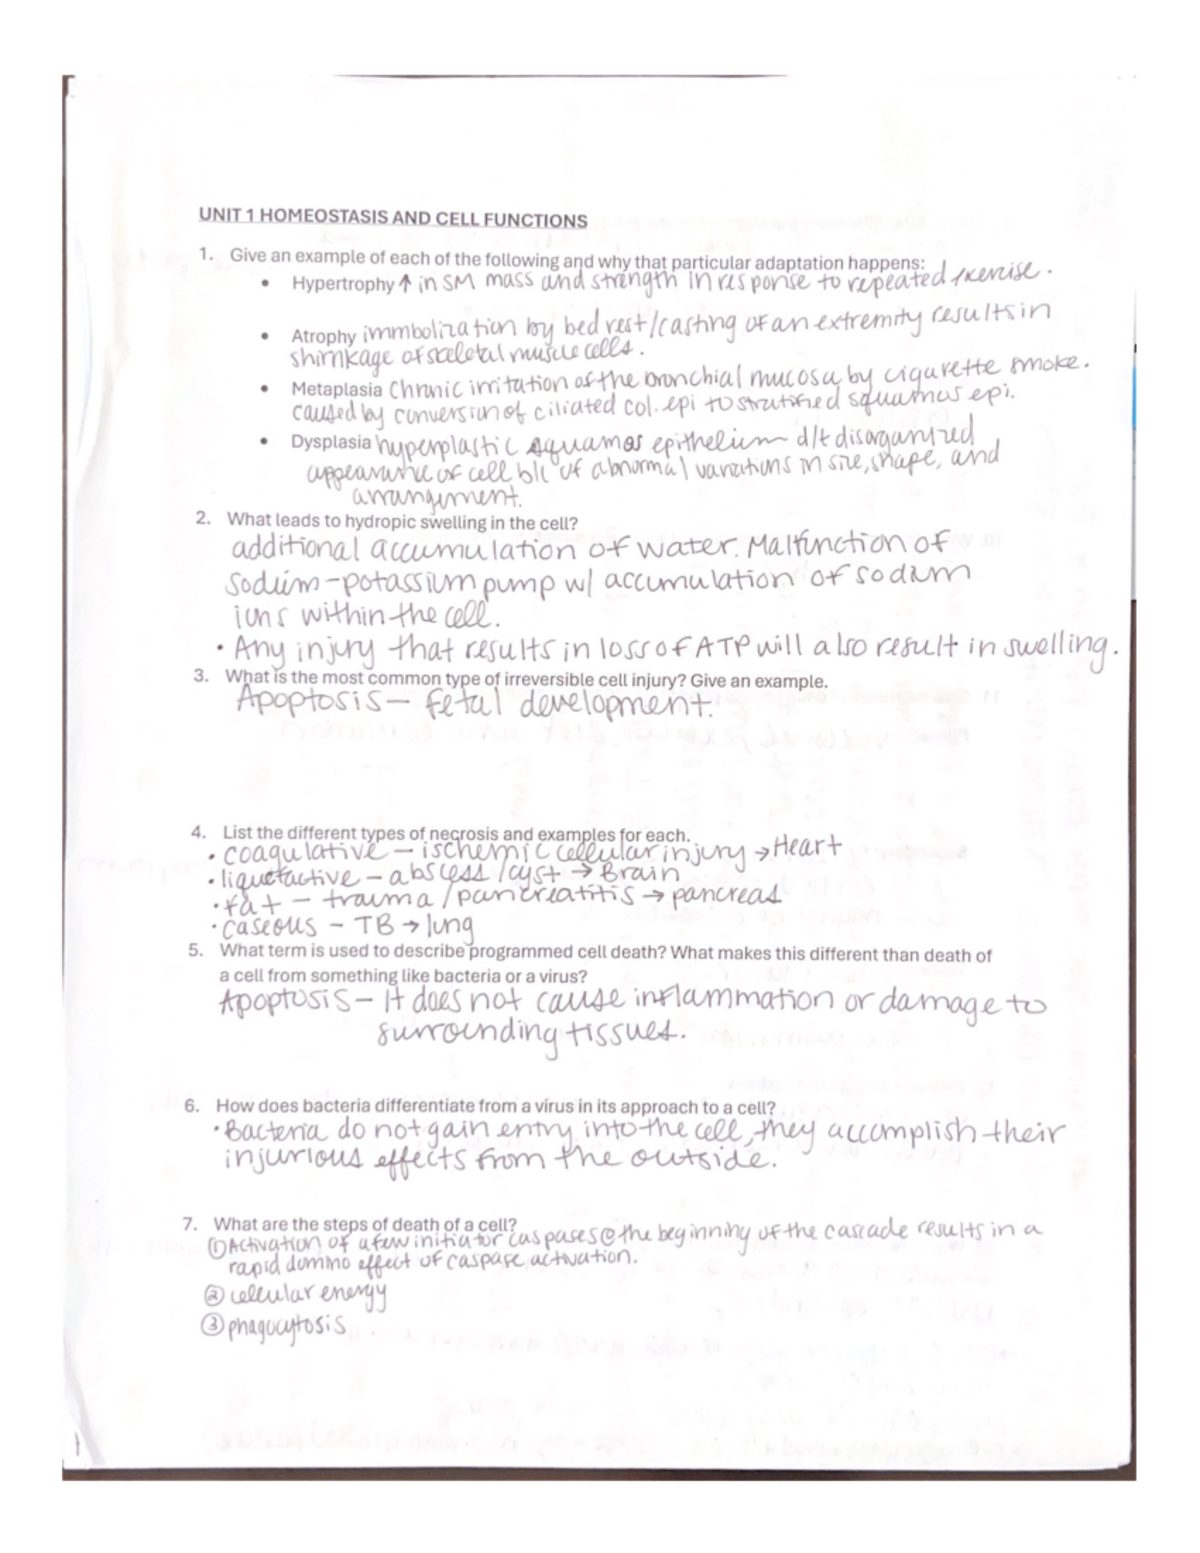 UNIT 1 HOMEOSTASIS AND CELL FUNCTIONS
1. Give an example of each of the following and why that particular adaptation happens:
• Hypertrophy ↑ in SM mass and strength in response to repeated exercise.
• Atrophy immbolization by bed rest/casting of an extremity results in
shrinkage of skeletal muscle cells.
• Metaplasia Chronic irritation of the bronchial mucosa by cigarette smoke.
caused by conversion of ciliated col. epi to stratified squamous epi.
• Dysplasia hyperplastic squamos epithelium d/t disorganized
appearance of cell b/c of abnormal variations in size, shape, and
arrangement.
2. What leads to hydropic swelling in the cell?
additional accumulation of water. Malfunction of
sodium-potassium pump w/ accumulation of sodium
ions within the cell.
• Any injury that results in loss of ATP will also result in swelling.
3. What is the most common type of irreversible cell injury? Give an example.
Apoptosis – fetal development.
4. List the different types of necrosis and examples for each.
• coagulative – ischemic cellular injury → Heart
• liquefactive – abscess/cyst → Brain
• fat – trauma/pancreatitis → pancreas
• caseous – TB → lung
5. What term is used to describe programmed cell death? What makes this different than death of
a cell from something like bacteria or a virus?
Apoptosis – It does not cause inflammation or damage to
surrounding tissues.
6. How does bacteria differentiate from a virus in its approach to a cell?
• Bacteria do not gain entry into the cell, they accomplish their
injurious effects from the outside.
7. What are the steps of death of a cell?
① Activation of a few initiator caspases @ the beginning of the cascade results in a
rapid domino effect of caspase activation.
② cellular energy
③ phagocytosis